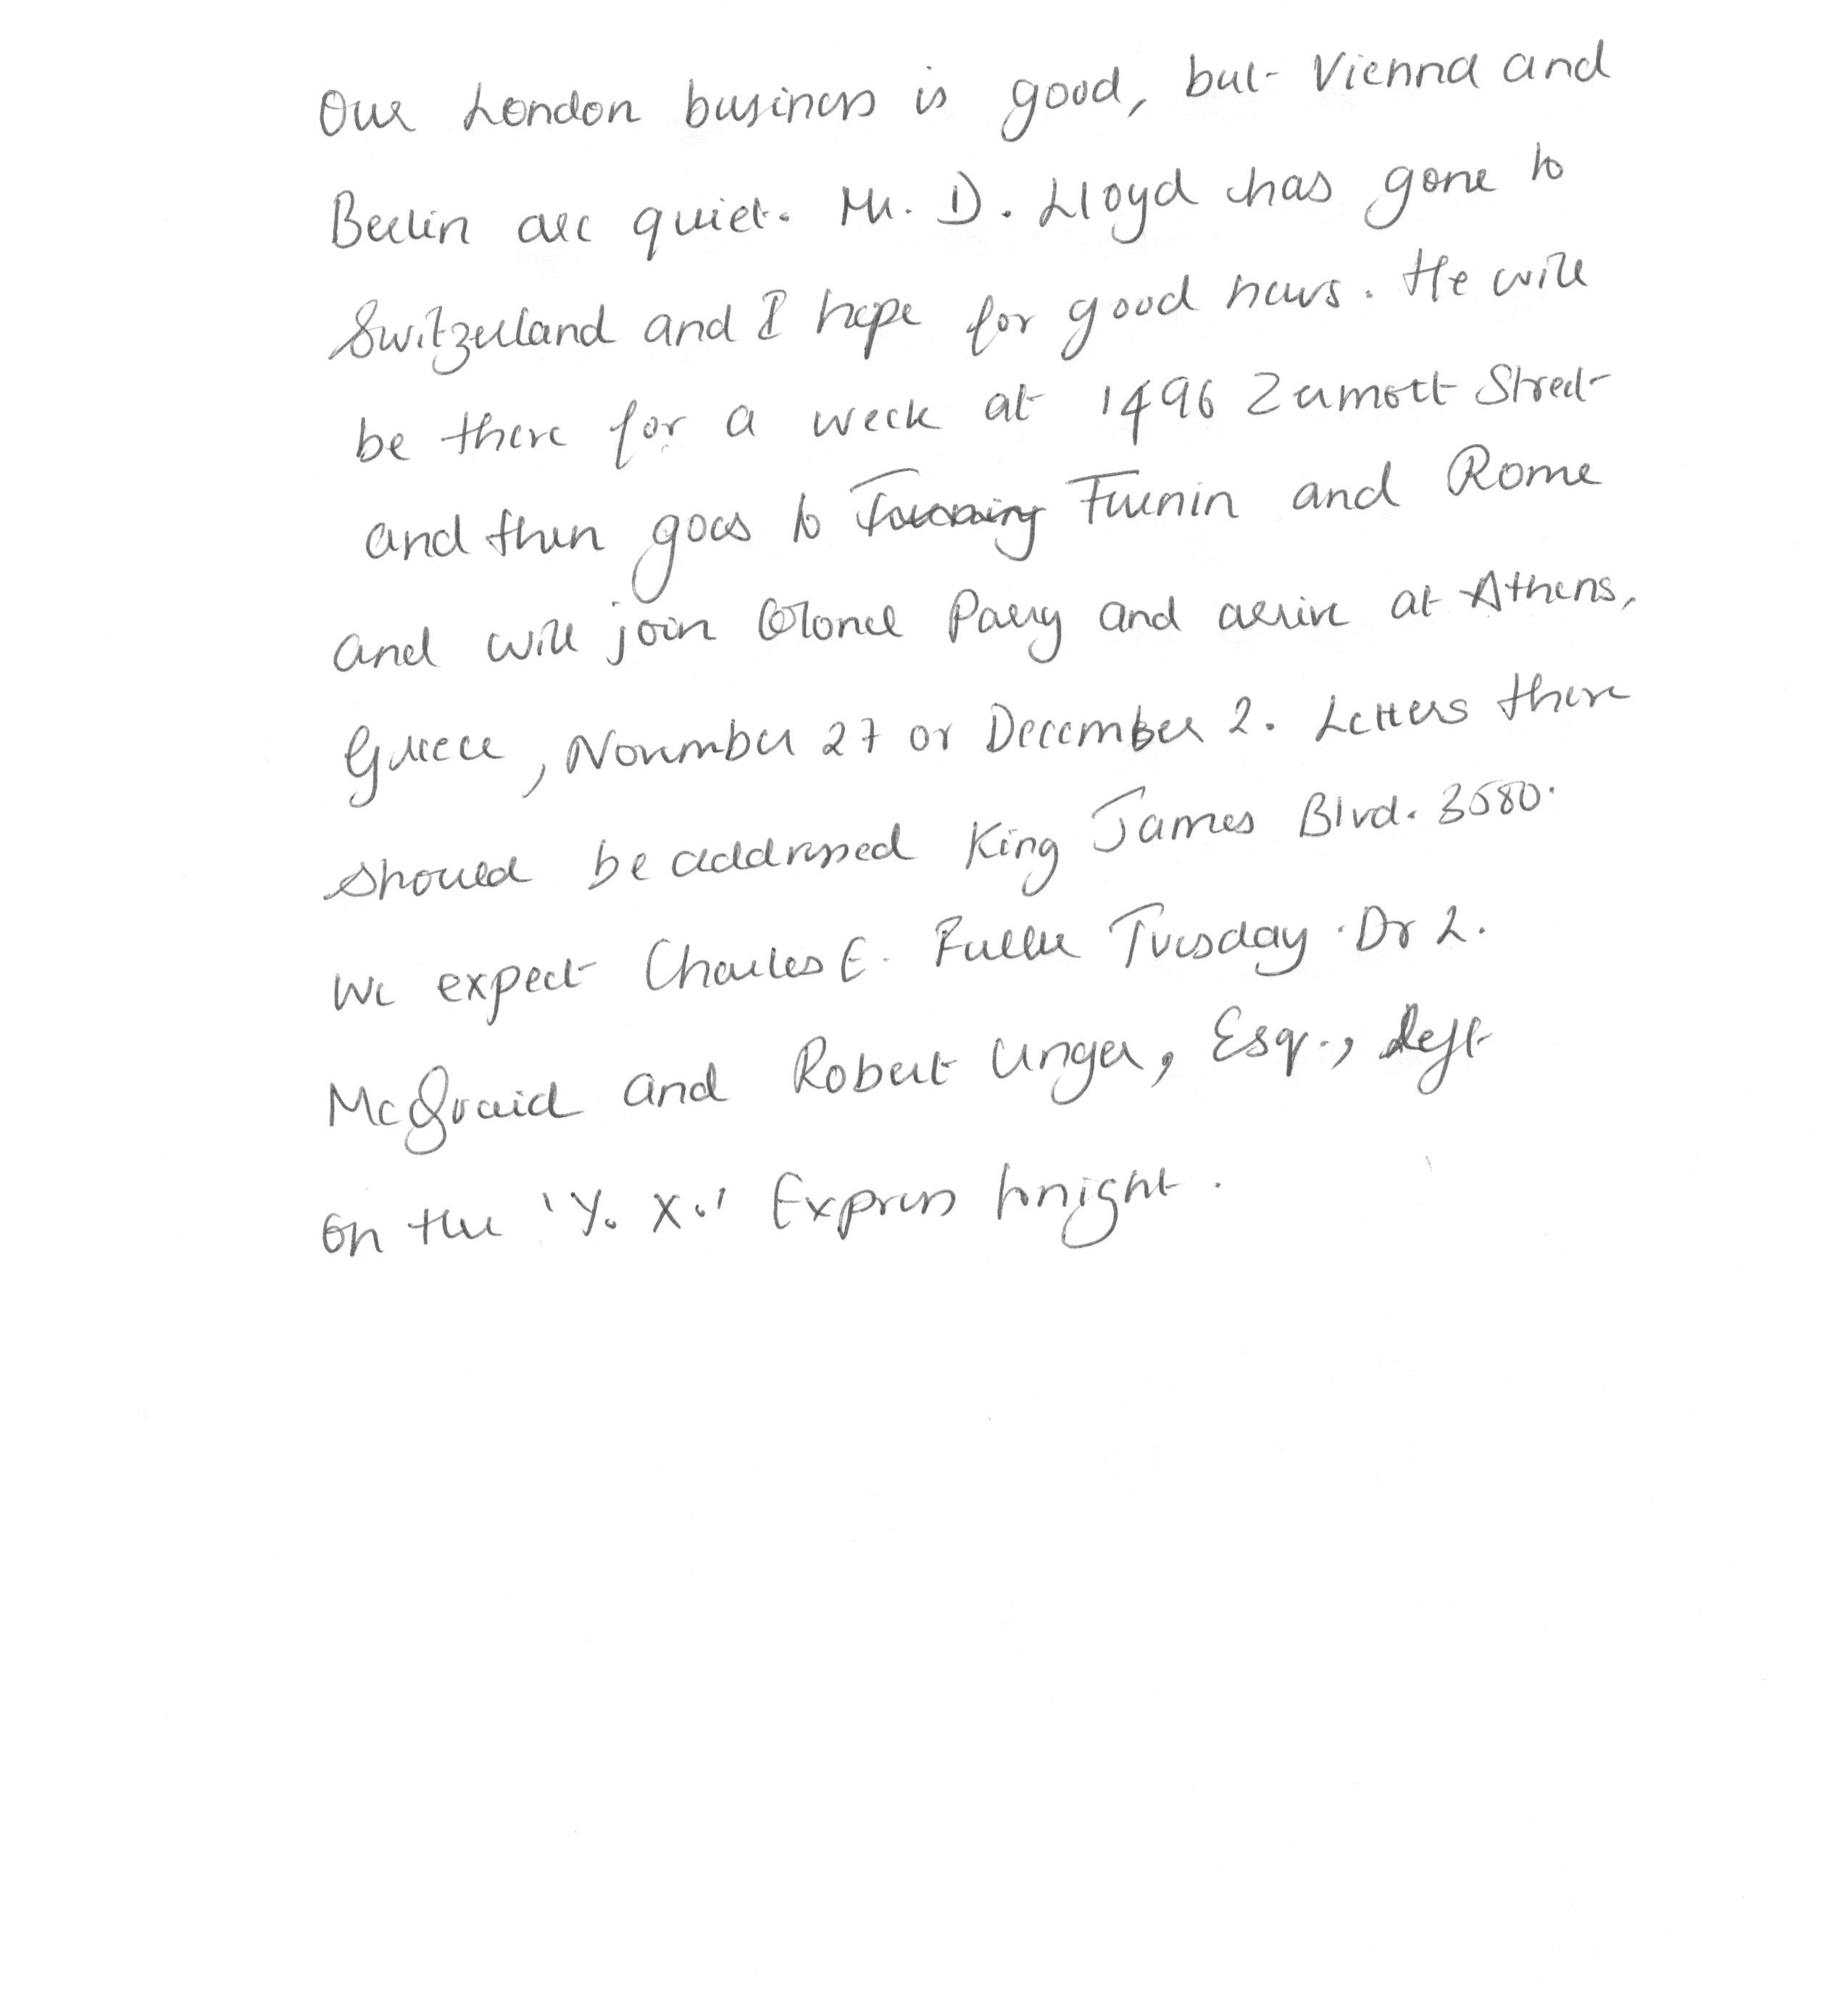 Our London business is good, but Vienna and
Berlin are quiet. Mr. D. Lloyd has gone to
Switzerland and I hope for good news. He will
be there for a week at 1496 Zumott Street
and then goes to Turnin and Rome
and will join Colonel Parry and arrive at Athens,
Greece, November 27 or December 2. Letters there
should be addressed King James Blvd. 3580.
We expect Charles E. Fuller Tuesday. Dr L.
McQuaid and Robert Unger, Esq., left
on the 'Y. X.' Express tonight.